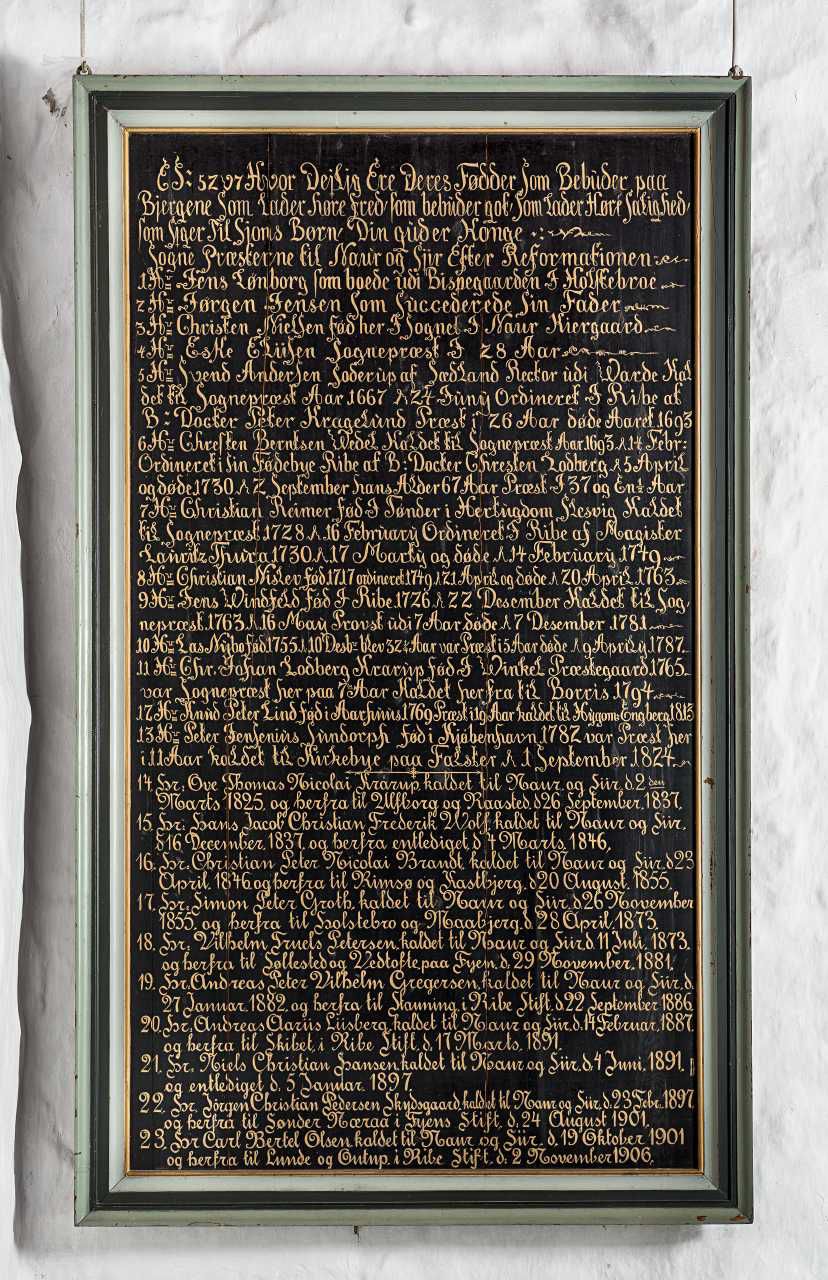 ES: 52 v7 Hvor Dejlig Ere Deres Fødder som Bebuder paa
Bjergene Som Lader høre Fred som bebuder got Som Lader Hørt Salighed
som siger Til Sions Børn Din guder Konge
Sogne Præsterne til Naur og Siir Efter Reformationen
1 Hr Jens Lønborg som boede udi Bispegaarden I Holstebroe
2 Hr Jørgen Jensen Som Succederede Sin Fader
3 Hr Christen Nielsen fød her I Sognet I Naur Kiergaard
4 Hr Eske Elüsen Sognepræst I 28 Aar
5 Hr Svend Andersen Soderup af SædLand Rector udi Warde Kal
det til Sognepræst Aar 1667 d 24 Juny Ordineret I Ribe af
B: Docter Peter Kragelund Præst i 26 Aar døde Aaret 1693
6 Hr Chresten Berntsen Wedel Kaldet til Sognepræst Aar 1693 d 14 Febr:
Ordineret i Sin Fødebye Ribe af B: Docter Chresten Lodberg d 5 April
og døde 1730 d 2 September hans Alder 67 Aar Præst I 37 og Et Aar
7 Hr Christian Reimer fød I Tønder i Hertugdom Slesvig Kaldet
til Sognepræst 1728 d 16 February Ordineret I Ribe af Magister
Lauritz Thura 1730 d 17 Marty og døde d 14 February 1749
8 Hr Christian Nislev fød 1717 ordineret 1749 d 21 April og døde d 20 April 1763
9 Hr Jens Windfeld Fød I Ribe 1726 d 22 Desember Kaldet til Sog-
nepræst 1763 d 16 May Provst udi 7 Aar døde d 7 Desember 1781
10 Hr Las Nybo fød 1755 d 10 Desbr blev 32¼ Aar var Præst i 5 Aar døde d 9 Aprily 1787
11 Hr Chr. Johan Lodberg Krarup fød I Winkel Præstegaard 1765
var Sognepræst her paa 7 Aar Kaldet herfra til Borris 1794
12 Hr Knud Peter Lind fød i Aarhuus 1769 Præst i 19 Aar kaldet til Hygom Engberg 1813
13 Hr Peter Jensenius Lundorph fød i Kjøbenhavn 1782 var Præst her
i 11 Aar kaldet til Kirkebye paa Falster d 1 September 1824
14. Hr. Ove Thomas Nicolai Krarup, kaldet til Naur og Siir, d. 2den
Marts 1825. og herfra til Ulfborg og Raasted, d 26 September. 1837.
15. Hr. Hans Jacob Christian Frederik Wolf, kaldet til Naur og Siir.
d 16 December. 1837. og herfra entlediget. d. 4 Marts. 1846.
16. Hr. Christian Peter Nicolai Brandt, kaldet til Naur og Siir. d 23
April. 1846 og herfra til Rimsø og Kastbjerg. d 20 August. 1855.
17. Hr. Simon Peter Groth, kaldet til Naur og Siir. d 26 November
1855. og herfra til Holstebro og Maabjerg. d 28 April. 1873.
18. Hr. Vilhelm Fruels Petersen, kaldet til Naur og Siir d 11 Juli. 1873.
og herfra til Fellested og Vedtofte, paa Fyen. d. 29 November. 1881.
19. Hr. Andreas Peter Vilhelm Gregersen, kaldet til Naur og Siir. d.
27 Januar. 1882. og herfra til Stauning, i Ribe Stift. d 22 September 1886
20. Hr. Andreas Aarüs Lüsberg, kaldet til Naur og Siir. d. 14 Februar. 1887.
og herfra til Skibet, i Ribe Stift. d. 17 Marts. 1891.
21. Hr. Niels Christian Hansen, kaldet til Naur og Siir. d. 4 Juni. 1891.
og entlediget d. 5 Januar. 1897.
22. Hr. Jörgen Christian Pedersen Skydsgaard, kaldet til Naur og Siir, d. 23 Febr. 1897
og herfra til Sønder Næraa i Fyens Stift, d. 24 August 1901.
23. Hr Carl Bertel Olsen kaldet til Naur og Siir d. 19 Oktober 1901
og herfra til Lunde og Outrup, i Ribe Stift. d: 2 November 1906.